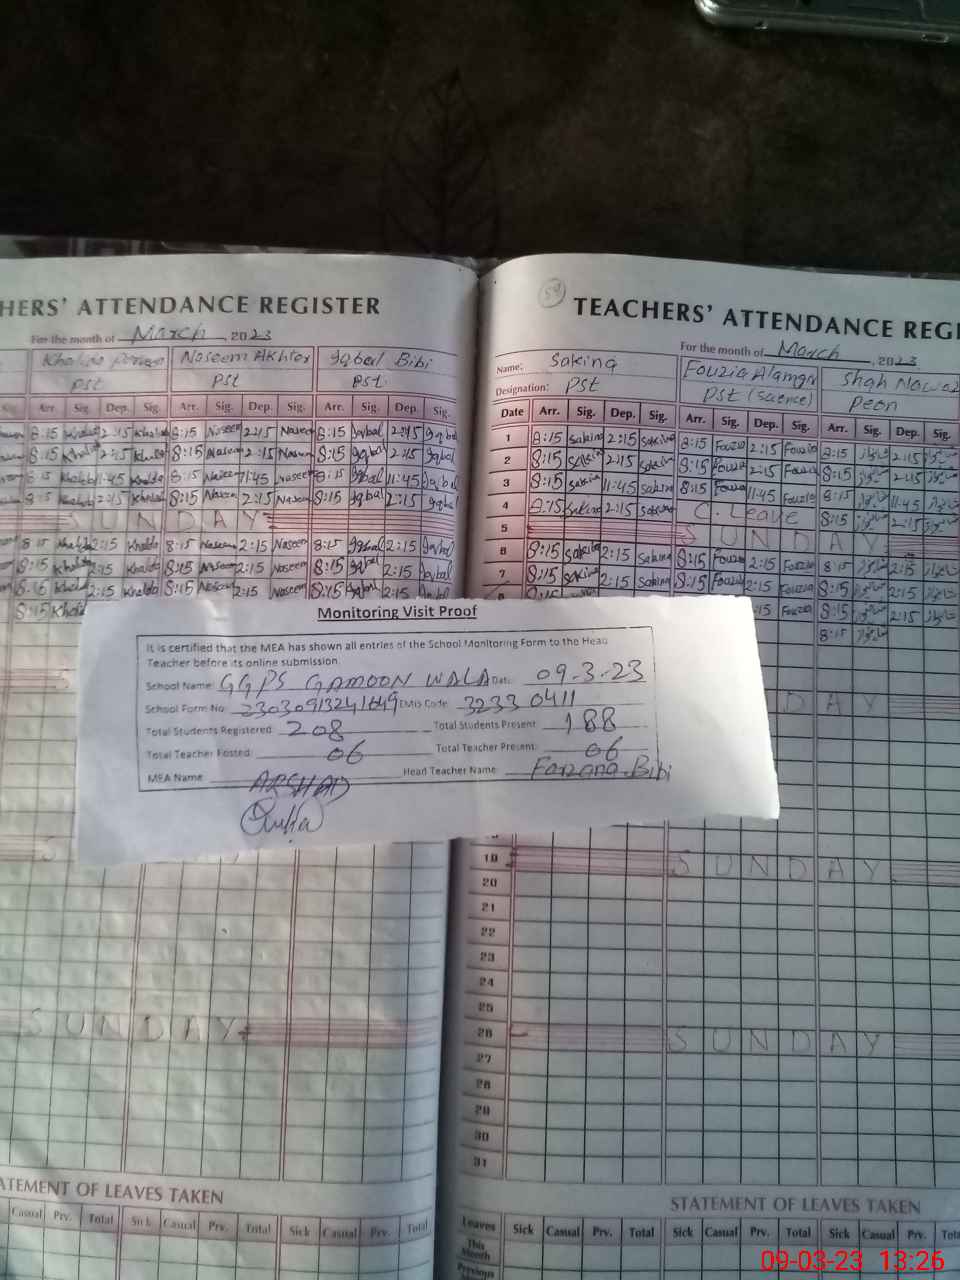 HERS' ATTENDANCE REGISTER
For the month of March, 2023
Khalida Parveen Naseem Akhter Iqbal Bibi
PST PST PST
Sig. Arr. Sig. Dep. Sig. Arr. Sig. Dep. Sig. Arr. Sig. Dep. Sig.
8:15 Khalida 2:15 Khalida 8:15 Naseem 2:15 Naseem 8:15 Iqbal 2:15 Iqbal
8:15 Khalida 2:15 Khalida 8:15 Naseem 2:15 Naseem 8:15 Iqbal 2:15 Iqbal
8:15 Khalida 11:45 Khalida 8:15 Naseem 11:45 Naseem 8:15 Iqbal 11:45 Iqbal
8:15 Khalida 2:15 Khalida 8:15 Naseem 2:15 Naseem 8:15 Iqbal 2:15 Iqbal
SUNDAY
8:15 Khalida 2:15 Khalida 8:15 Naseem 2:15 Naseem 8:15 Iqbal 2:15 Iqbal
8:15 Khalida 2:15 Khalida 8:15 Naseem 2:15 Naseem 8:15 Iqbal 2:15 Iqbal
8:15 Khalida 2:15 Khalida 8:15 Naseem 2:15 Naseem 8:15 Iqbal 2:15 Iqbal
8:15 Khalida
S
S
SUNDAY
STATEMENT OF LEAVES TAKEN
Casual Prv. Total Sick Casual Prv. Total Sick Casual Prv. Total
59
TEACHERS' ATTENDANCE REGI
For the month of March, 2023
Name: Sakina Fouzia Alamgir Shah Nawaz
Designation: PST PST (Science) Peon
Date Arr. Sig. Dep. Sig. Arr. Sig. Dep. Sig. Arr. Sig. Dep. Sig.
1 8:15 Sakina 2:15 Sakina 8:15 Fouzia 2:15 Fouzia 8:15 2:15
2 8:15 Sakina 2:15 Sakina 8:15 Fouzia 2:15 Fouzia 8:15 2:15
3 8:15 Sakina 11:45 Sakina 8:15 Fouzia 11:45 Fouzia 8:15 11:45
4 8:15 Sakina 2:15 Sakina C. Leave 8:15 2:15
5 SUNDAY
6 8:15 Sakina 2:15 Sakina 8:15 Fouzia 2:15 Fouzia 8:15 2:15
7 8:15 Sakina 2:15 Sakina 8:15 Fouzia 2:15 Fouzia 8:15 2:15
8 2:15 Fouzia 8:15
DAY
19 SUNDAY
20
21
22
23
24
25
26 SUNDAY
27
28
29
30
31
STATEMENT OF LEAVES TAKEN
Leaves Sick Casual Prv. Total Sick Casual Prv. Total Sick Casual Prv. Tot
This Month
Previous
Monitoring Visit Proof
It is certified that the MEA has shown all entries of the School Monitoring Form to the Head
Teacher before its online submission.
School Name: GGPS GAMOON WALA Date: 09-3-23
School Form No: 23030913241649 EMIS Code: 32330411
Total Students Registered: 208 Total Students Present: 188
Total Teacher Posted: 06 Total Teacher Present: 06
MEA Name: ARSHAD Head Teacher Name: Farzana Bibi
09-03-23 13:26